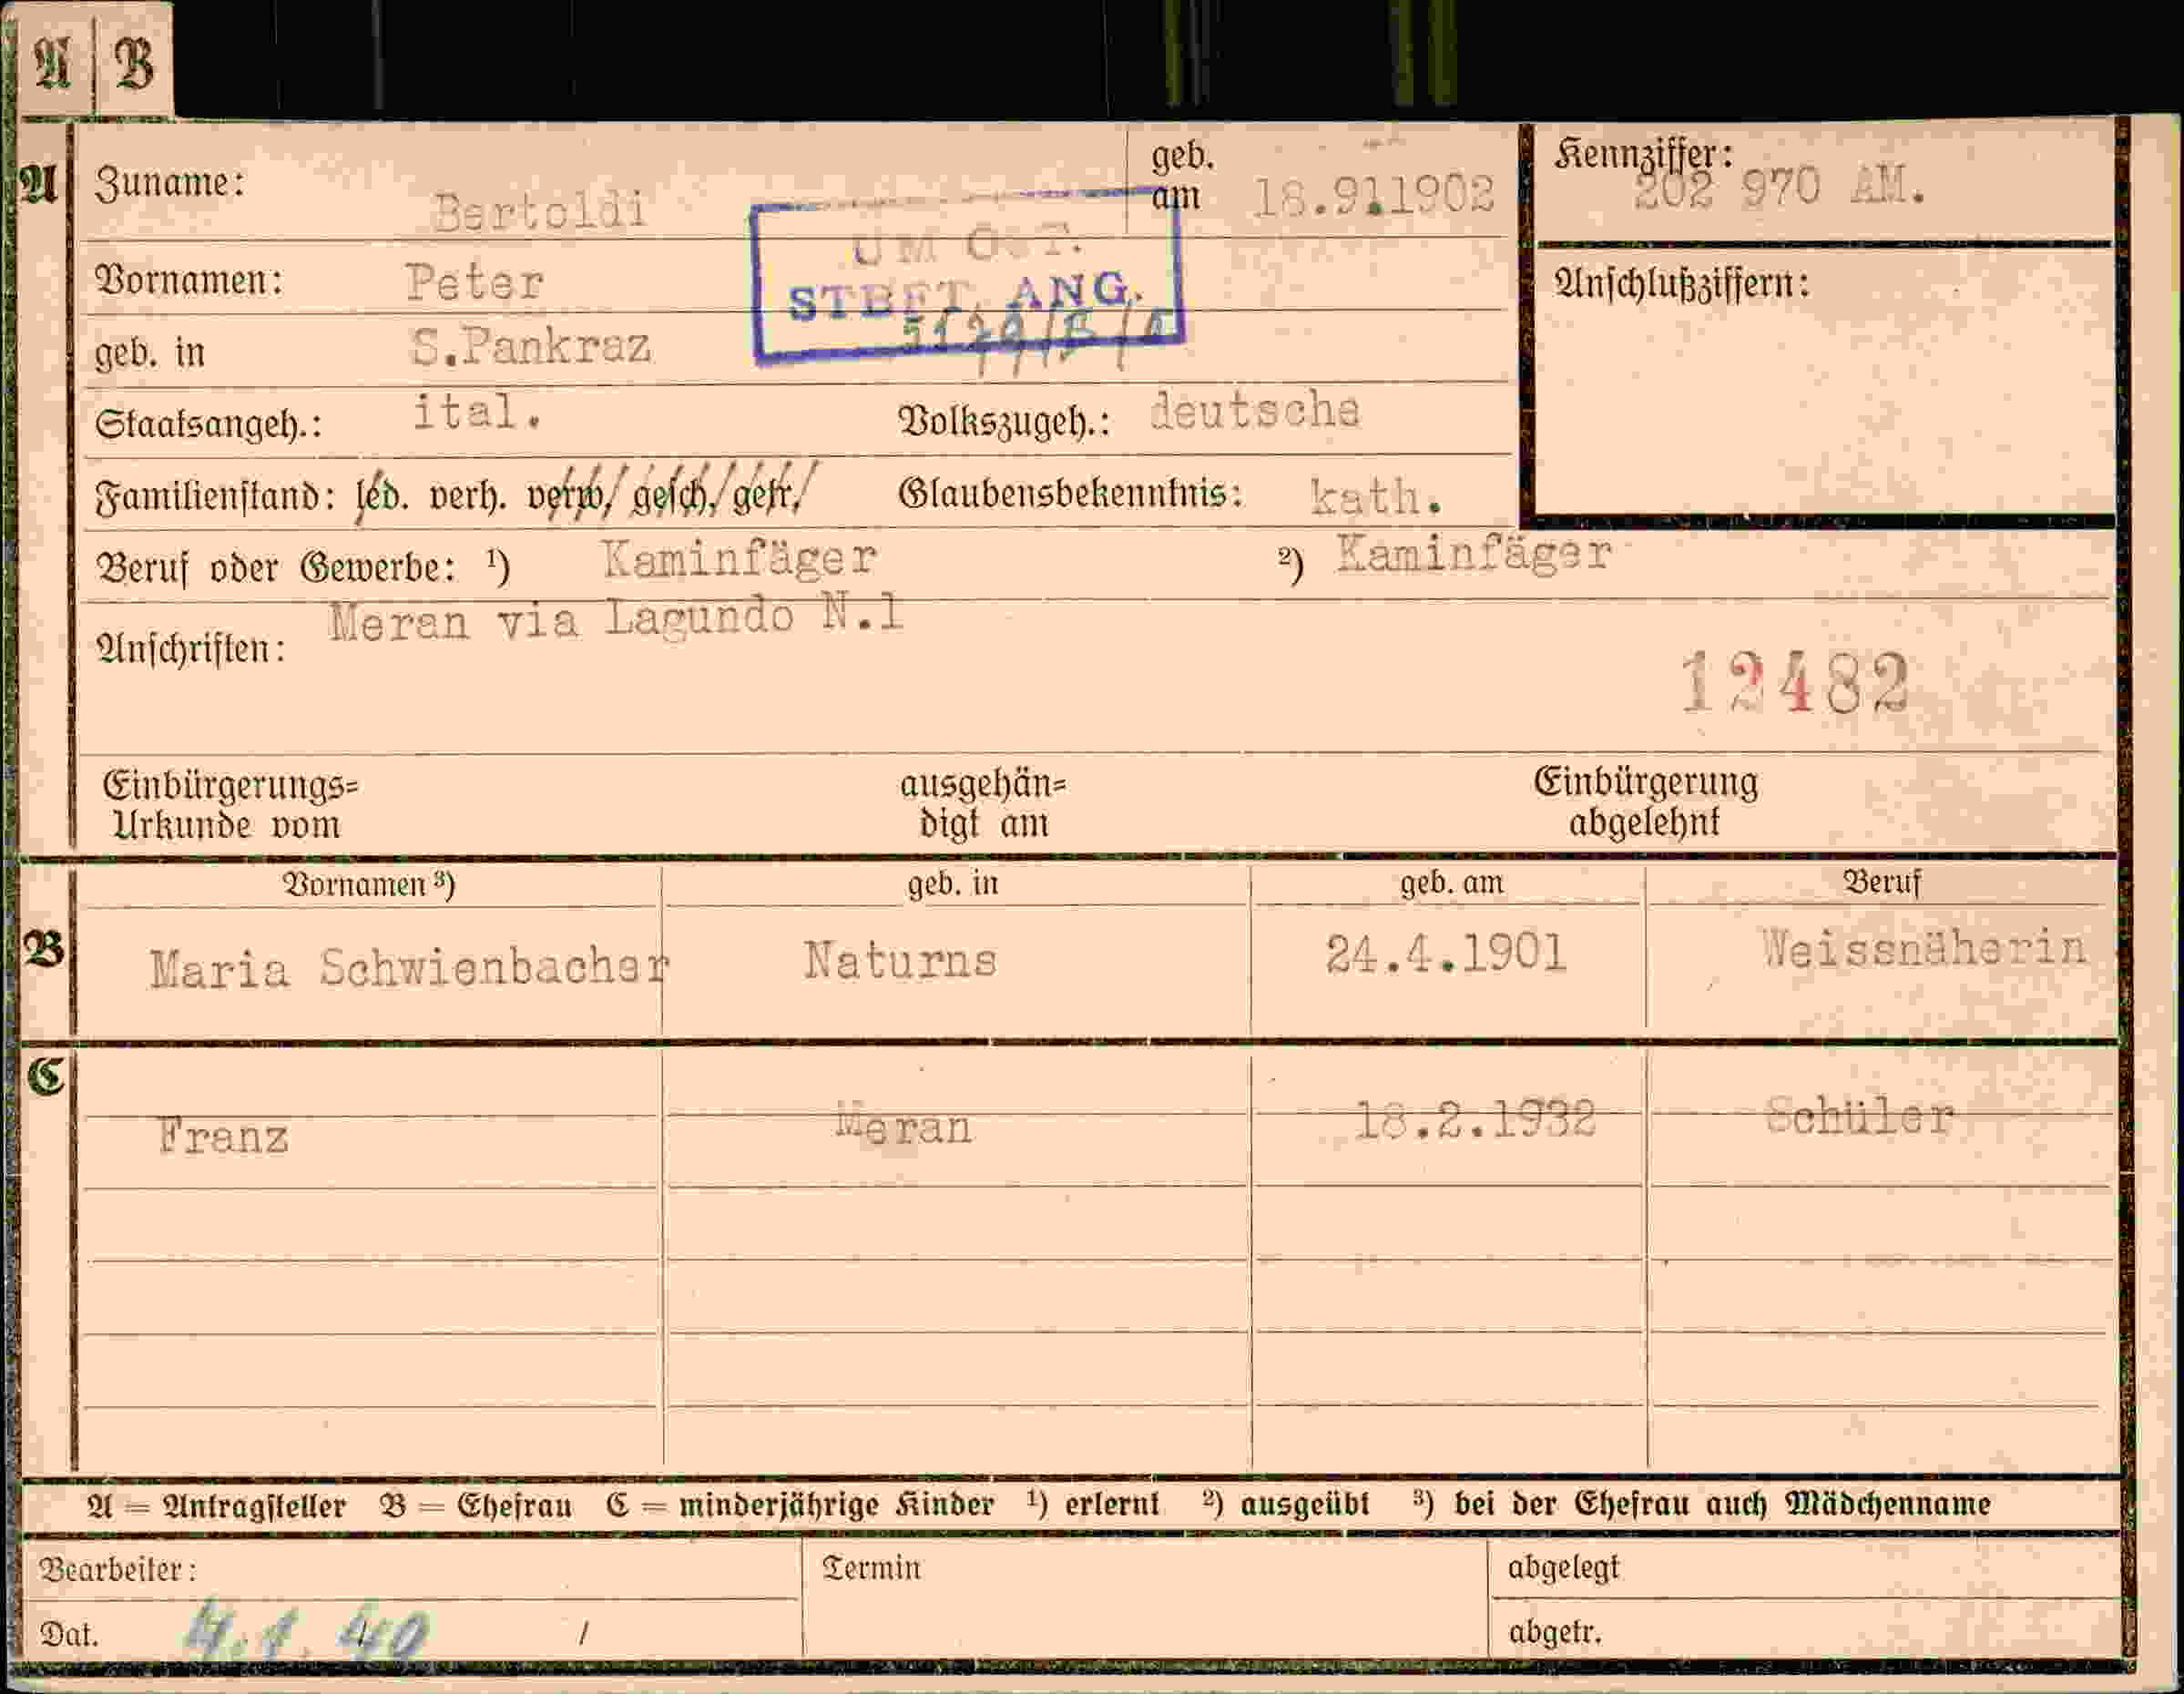 A B
A Zuname: Bertoldi geb. am 18.9.1902 Kennziffer: 202 970 AM.
STBET. ANG.
Vornamen: Peter Anschlußziffern:
geb. in S.Pankraz
Staatsangeh.: ital. Volkszugeh.: deutsche
Familienstand: led. verh. verw. gesch. getr. Glaubensbekenntnis: kath.
Beruf oder Gewerbe: ¹) Kaminfäger ²) Kaminfäger
Anschriften: Meran via Lagundo N.1
12482
Einbürgerungs= ausgehän= Einbürgerung
Urkunde vom digt am abgelehnt
Vornamen ³) geb. in geb. am Beruf
B Maria Schwienbacher Naturns 24.4.1901 Weissnäherin
C
Franz Meran 18.2.1932 Schüler
A = Antragsteller B = Ehefrau C = minderjährige Kinder ¹) erlernt ²) ausgeübt ³) bei der Ehefrau auch Mädchenname
Bearbeiter: Termin abgelegt
Dat. 4.1.40 / abgetr.